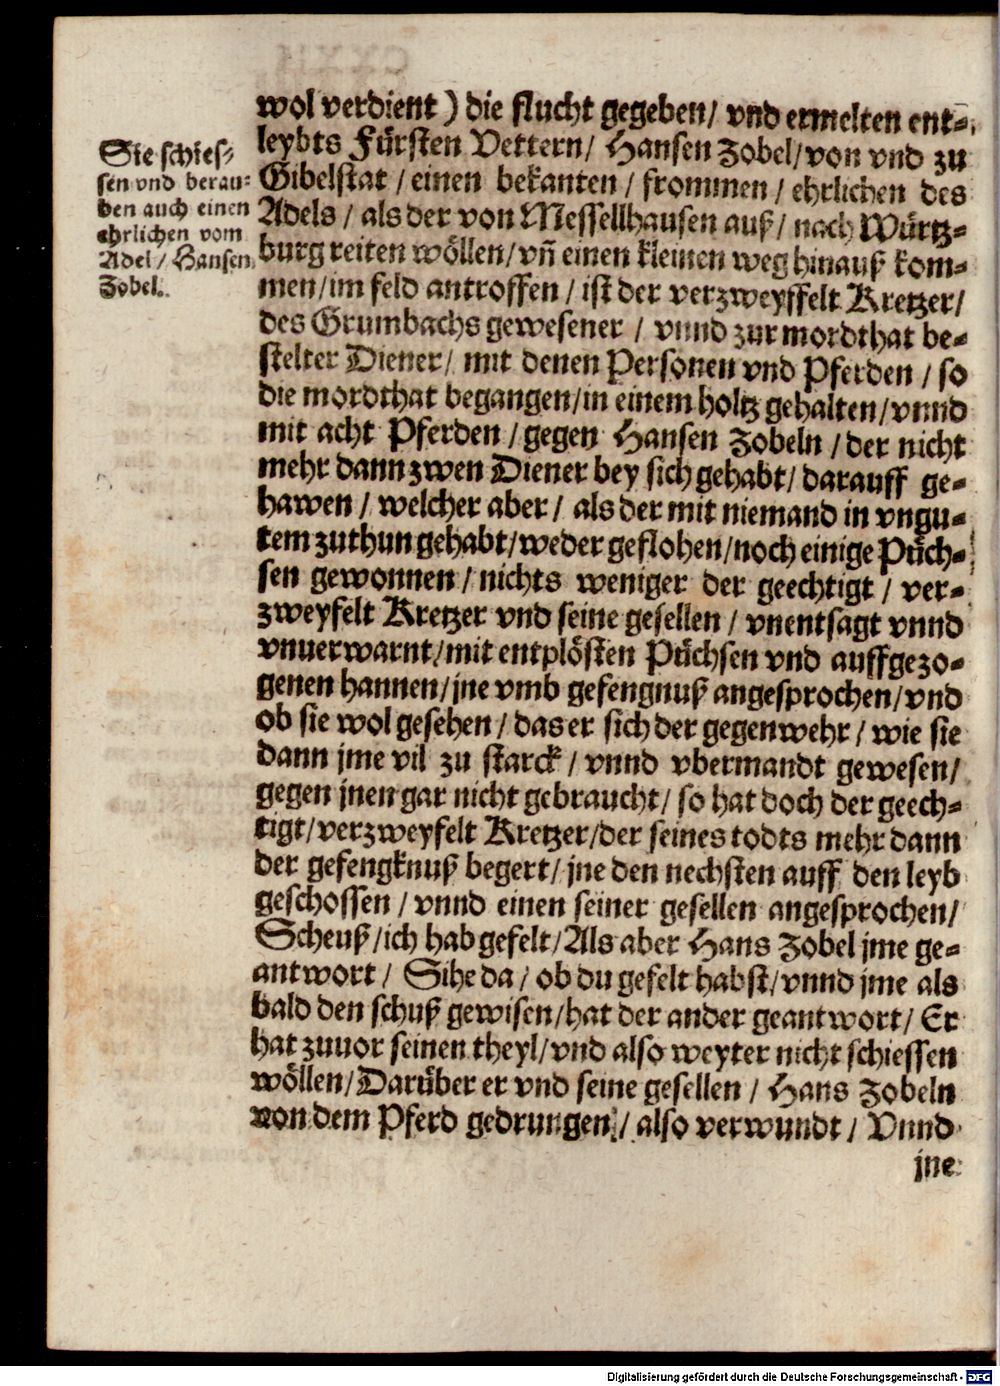 Sie schies⸗
sen vnd berau⸗
ben auch einen
ehrlichen vom
Adel / Hansen
Zobel.
wol verdient) die flucht gegeben/ vnd ermelten ent⸗
leybts Fürsten Vettern/ Hansen Zobel/ von vnd zu
Gibelstat / einen bekanten / frommen / ehrlichen des
Adels / als der von Messellhausen auß / nach Würtz⸗
burg reiten wöllen/ vn̄ einen kleinen weg hinauß kom⸗
men/ im feld antroffen / ist der verzweyffelt Kretzer/
des Grumbachs gewesener / vnnd zur mordthat be⸗
stelter Diener/ mit denen Personen vnd Pferden / so
die mordthat begangen/ in einem holtz gehalten/ vnnd
mit acht Pferden / gegen Hansen Zobeln / der nicht
mehr dann zwen Diener bey sich gehabt/ darauff ge⸗
hawen / welcher aber / als der mit niemand in vngu⸗
tem zuthun gehabt/ weder geflohen/ noch einige Püch⸗
sen gewonnen / nichts weniger der geechtigt / ver⸗
zweyfelt Kretzer vnd seine gesellen / vnentsagt vnnd
vnuerwarnt/ mit entplösten Püchsen vnd auffgezo⸗
genen hannen/ jne vmb gefengnuß angesprochen/ vnd
ob sie wol gesehen / das er sich der gegenwehr / wie sie
dann jme vil zu starck / vnnd vbermandt gewesen/
gegen jnen gar nicht gebraucht/ so hat doch der geech⸗
tigt/ verzweyfelt Kretzer/ der seines todts mehr dann
der gefengknuß begert/ jne den nechsten auff den leyb
geschossen / vnnd einen seiner gesellen angesprochen/
Scheuß/ ich hab gefelt/ Als aber Hans Zobel jme ge⸗
antwort / Sihe da / ob du gefelt habst/ vnnd jme als
bald den schuß gewisen/ hat der ander geantwort/ Er
hat zuuor seinen theyl/ vnd also weyter nicht schiessen
wöllen/ Darüber er vnd seine gesellen / Hans Zobeln
von dem Pferd gedrungen / also verwundt / Vnnd
jne
Digitalisierung gefördert durch die Deutsche Forschungsgemeinschaft - DFG